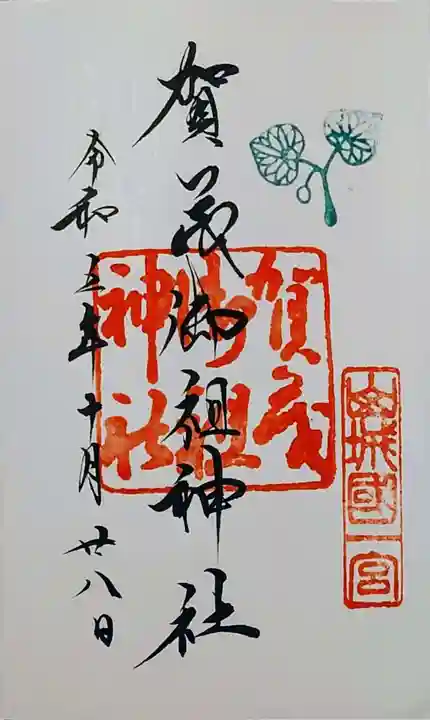 山城國一宮
賀茂御祖神社
賀茂御祖神社
令和五年十月廿八日